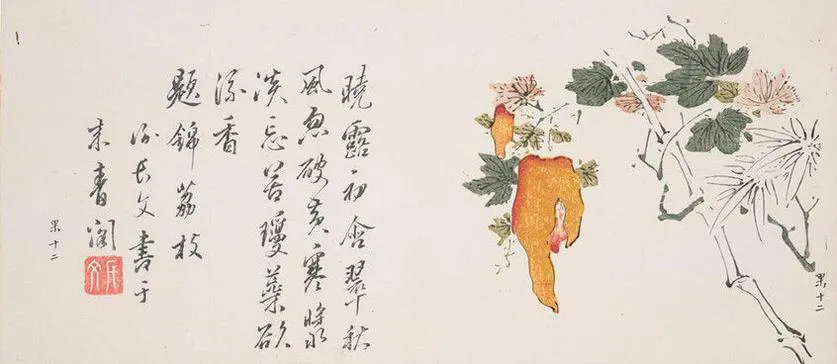 果十二
曉露初含翠秋
風忽破黃寒漿
淡忘苦瓊蘂欲
流香
題錦荔枝
長文書于
青閣
果十二